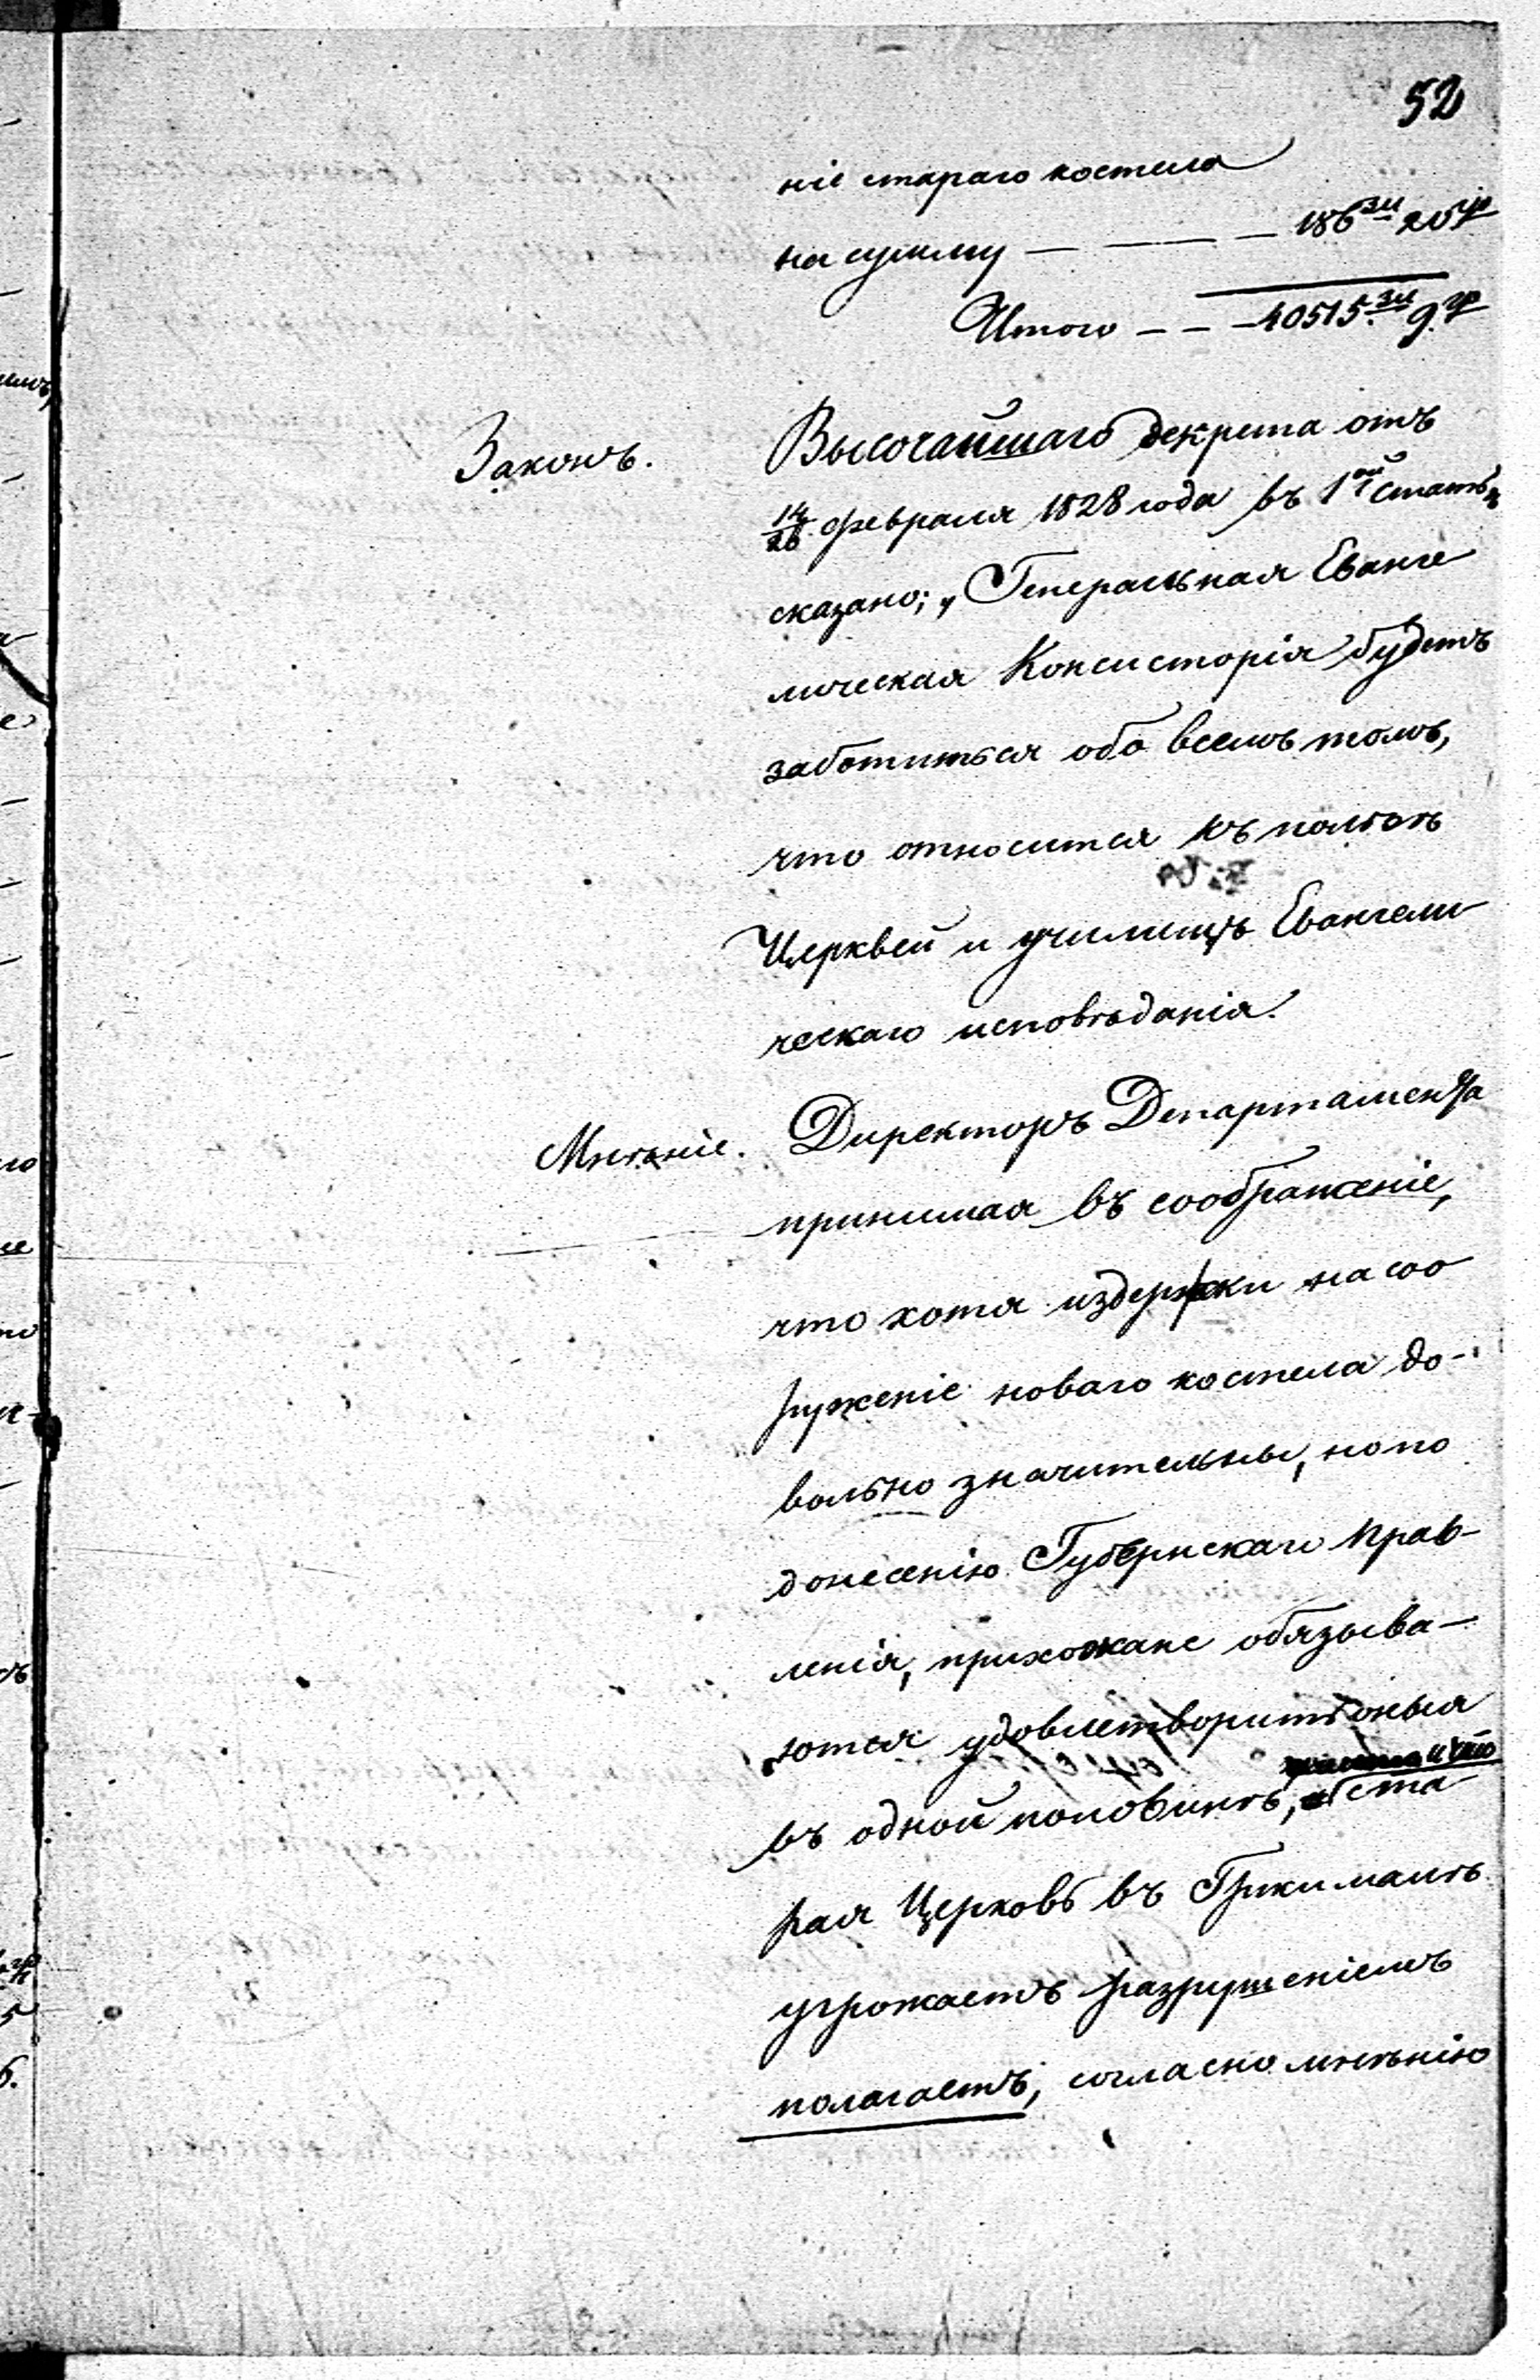 52
ніе стараго костела
на сумму — — — 186 зл 20 гр
Итого — — 40515 зл 9 гр
Законъ. Высочайшаго декрета отъ
14/26 февраля 1828 года въ 1ой статьѣ
сказано; „Генеральная Еванге
лическая Консисторія будетъ
заботиться обо всемъ томъ,
что относится къ пользѣ
Церквей и училищъ Евангели-
ческаго исповѣданія.
Мнѣніе. Директоръ Департамента
принимая въ соображеніе,
что хотя издержки на соо
руженіе новаго костела до-
вольно значительны, но по
донесенію Губернскаго Прав-
ленія, прихожане обязыва-
ются удовлетворить оныя
и что
въ одной половинѣ, ста
рая Церковь въ
угрожаетъ разрушеніемъ
полагаетъ, согласно мнѣнію